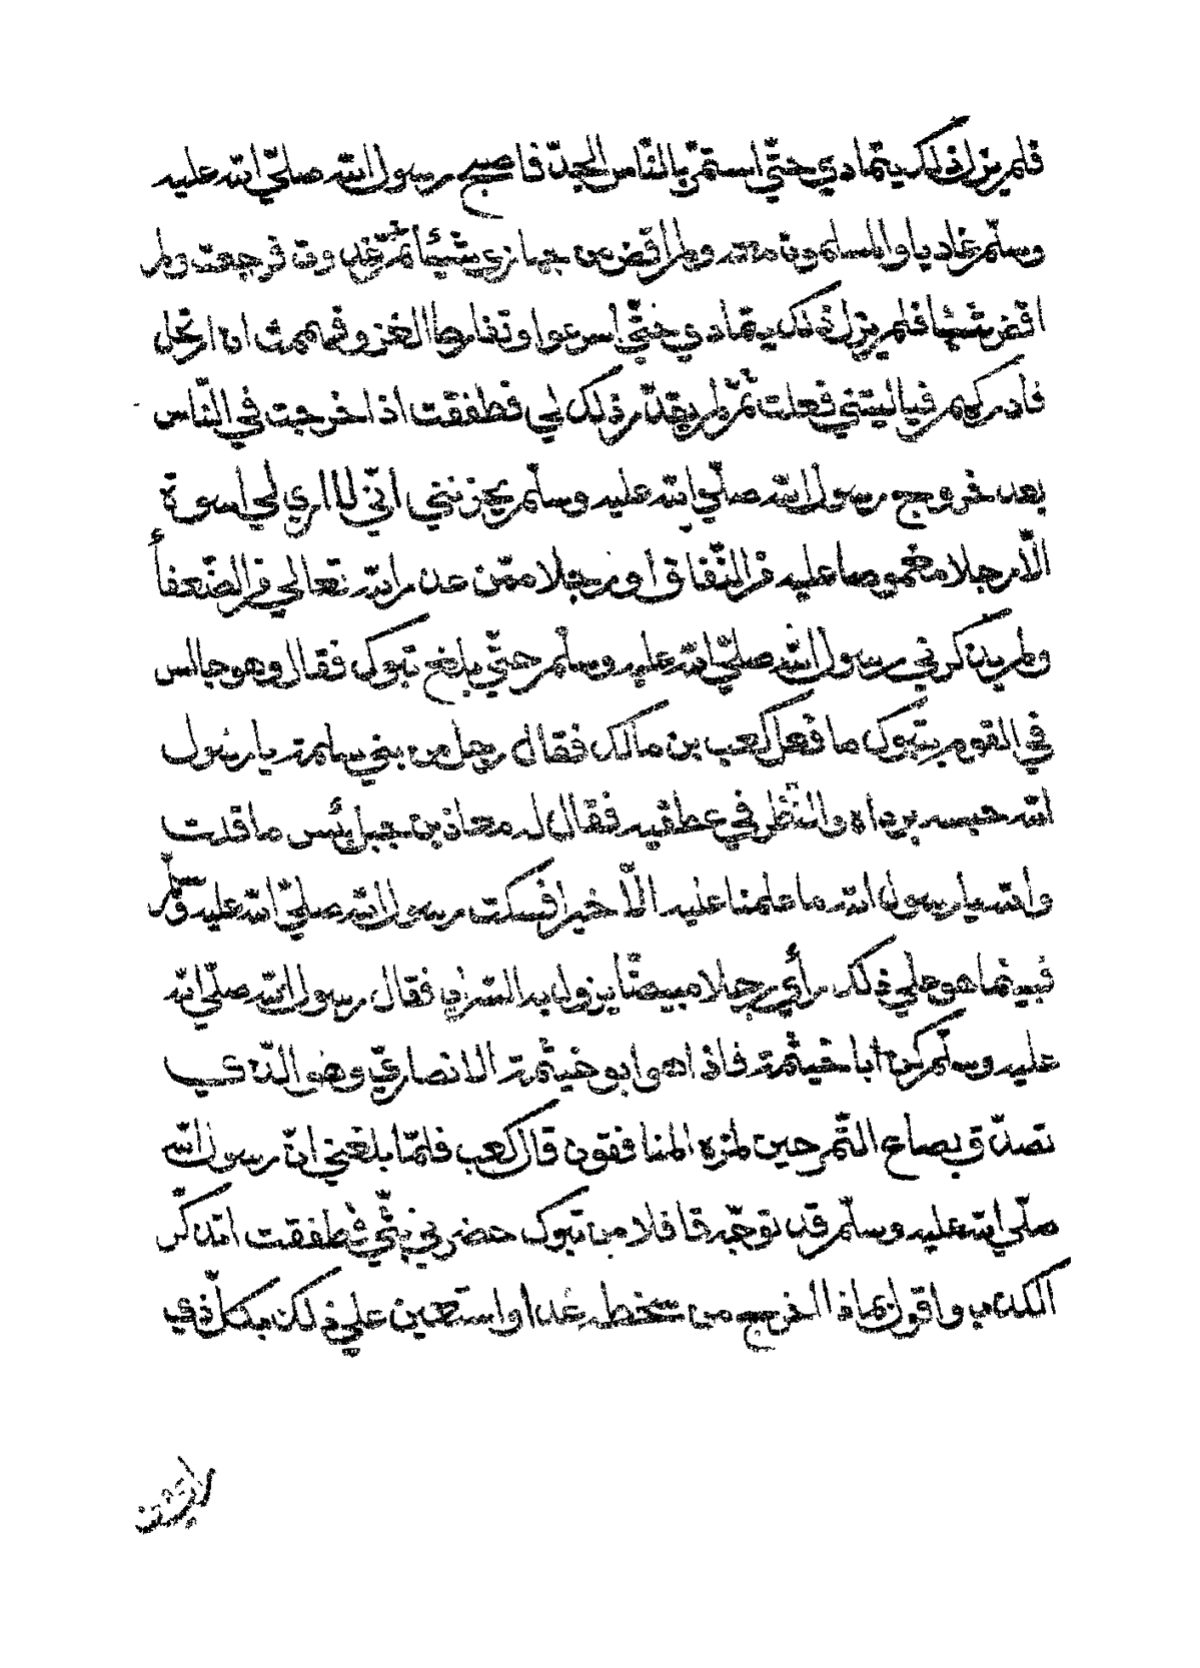 فلم يزل ذلك يتمادي حتّي استمرّ بالنّاس الجدّ فاصبح رسول الله صلّي الله عليه
وسلّم غاديا والمسلمون معه ولم اقض من جهازي شيئاً ثمّ غدوت فرجعت ولم
اقض شيئا فلم يزل ذلك يتمادي حتّي اسرعوا وتفارط الغزو فهممت ان ارتحل
فادركهم فياليتني فعلت ثمّ لم يقدّر ذلك لي فطفقت اذا خرجت في النّاس
بعد خروج رسول الله صلّي الله عليه وسلّم يحزنني انّي لا اري لي اسوة
الّا رجلا مغموصا عليه في النّفاق او رجلا ممّن عذر الله تعالي في الضّعفأ
ولم يذكرني رسول الله صلّي الله عليه وسلّم حتّي بلغ تبوك فقال وهو جالس
في القوم بتبوك ما فعل كعب بن مالك فقال رجل من بني سلمة يا رسول
الله حبسه برداه والنّظر في عطفيه فقال له معاذ بن جبل بئس ما قلت
والله يا رسول الله ما علمنا عليه الّا خيرا فسكت رسول الله صلّي الله عليه وسلّم
فبينما هو علي ذلك رأي رجلا مبيضّا يزول به السّراب فقال رسول الله صلّي الله
عليه وسلّم كن أبا خيثمة فاذا هو ابو خيثمة الانصاريّ وهو الّذي
تصدّق بصاع التّمر حين لمزه المنافقون قال كعب فلمّا بلغني انّ رسول الله
صلّي الله عليه وسلّم قد توجّه قافلا من تبوك حضرني بثّي فطفقت اتذكّر
الكذب واقول بماذا اخرج من سخطه غدا واستعين علي ذلك بكلّ ذي